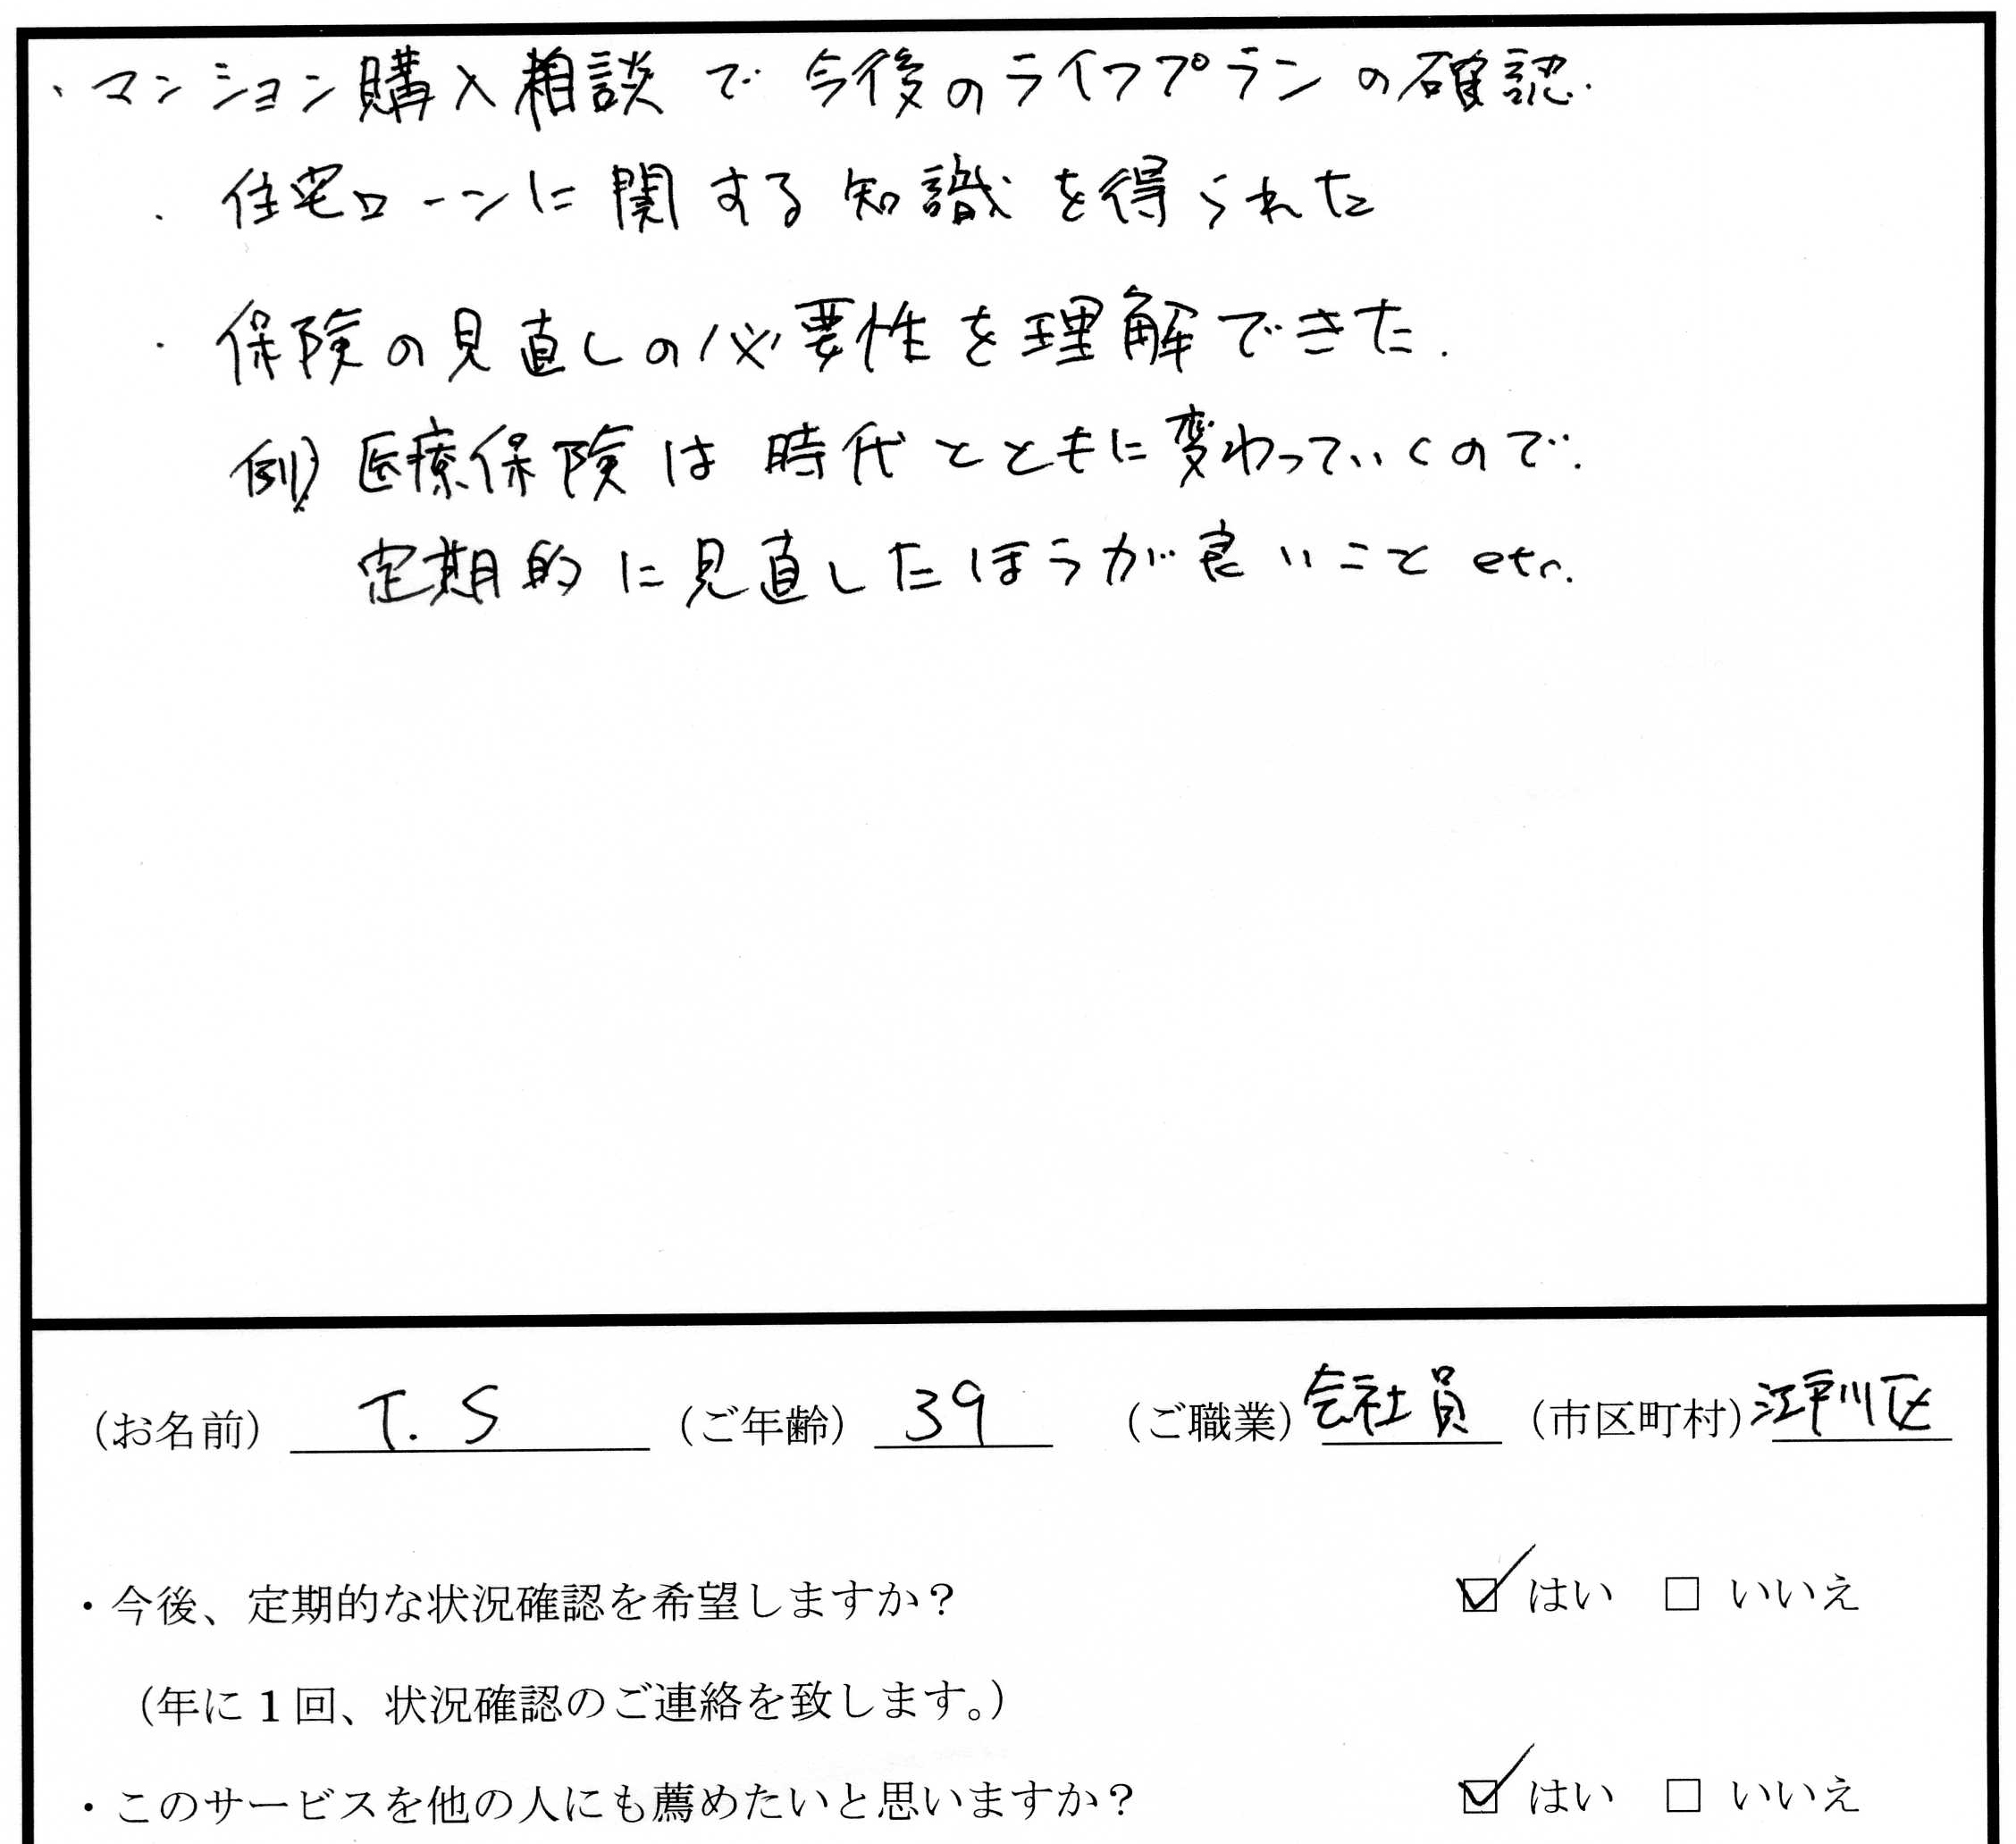 ・マンション購入相談で今後のライフプランの確認.
・住宅ローンに関する知識を得られた
・保険の見直しの必要性を理解できた.
例) 医療保険は時代とともに変わっていくので.
定期的に見直したほうが良いこと etc.
(お名前) T. S (ご年齢) 39 (ご職業) 会社員 (市区町村) 江戸川区
・今後、定期的な状況確認を希望しますか? ☑ はい □ いいえ
(年に1回、状況確認のご連絡を致します。)
・このサービスを他の人にも薦めたいと思いますか? ☑ はい □ いいえ